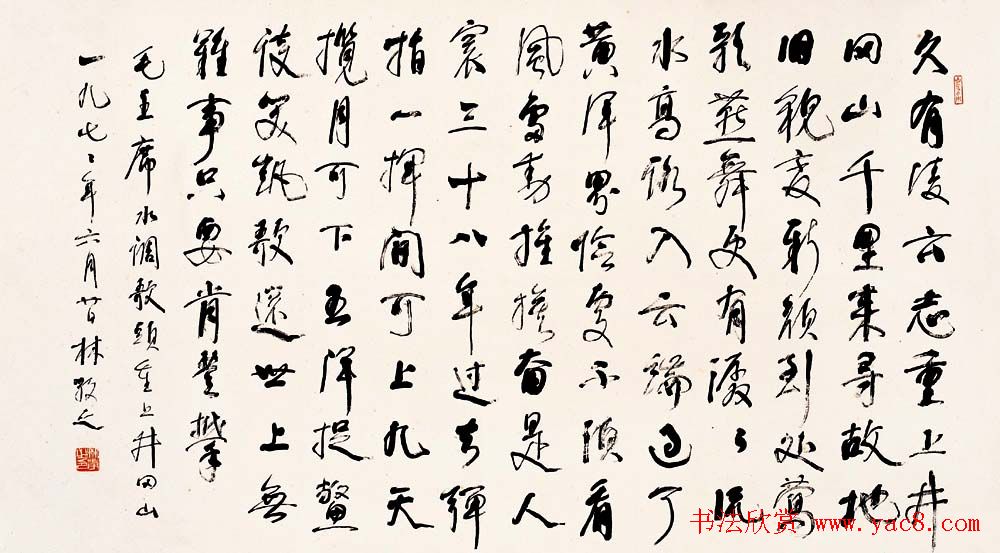 久有凌云志重上井
冈山千里来寻故地
旧貌变新颜到处莺
歌燕舞更有潺々流
水高路入云端过了
黄洋界险处不须看
風雷動旌旗奋是人
寰三十八年过去弹
指一揮間可上九天
攬月可下五洋捉鳖
谈笑凱歌還世上無
難事只要肯登攀
毛主席水调歌头重上井冈山
一九七々年六月廿日林散之
书法欣赏 www.yac8.com